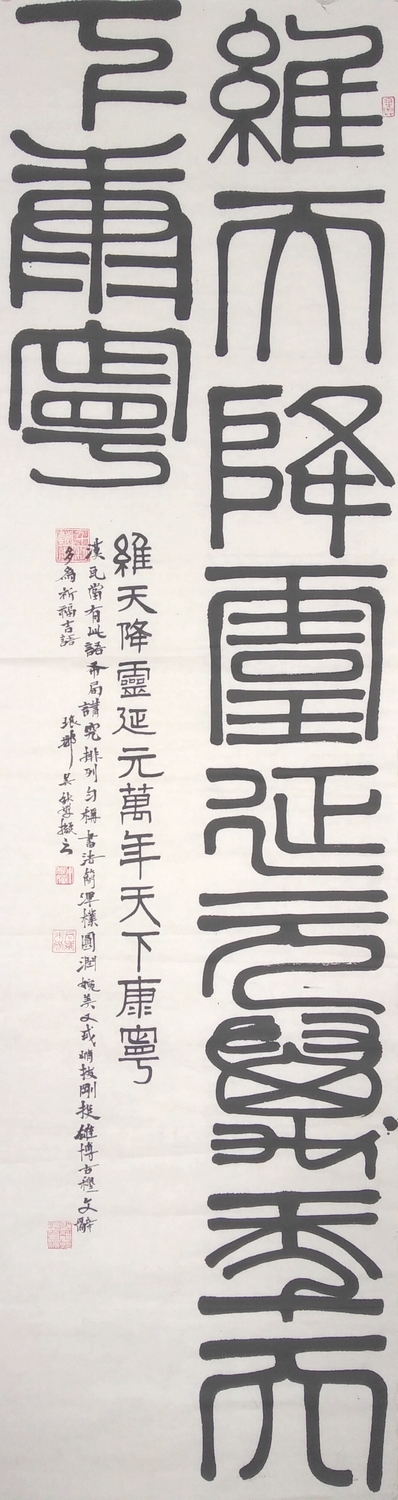 維天降靈延元萬年天
下康寧
維天降靈延元萬年天下康寧
漢瓦當有此語布局講究排列勻稱書法簡渾樸圓潤婉美又或峭拔剛挺雄博古穆文辭
多為祈福吉語 琅郡吳